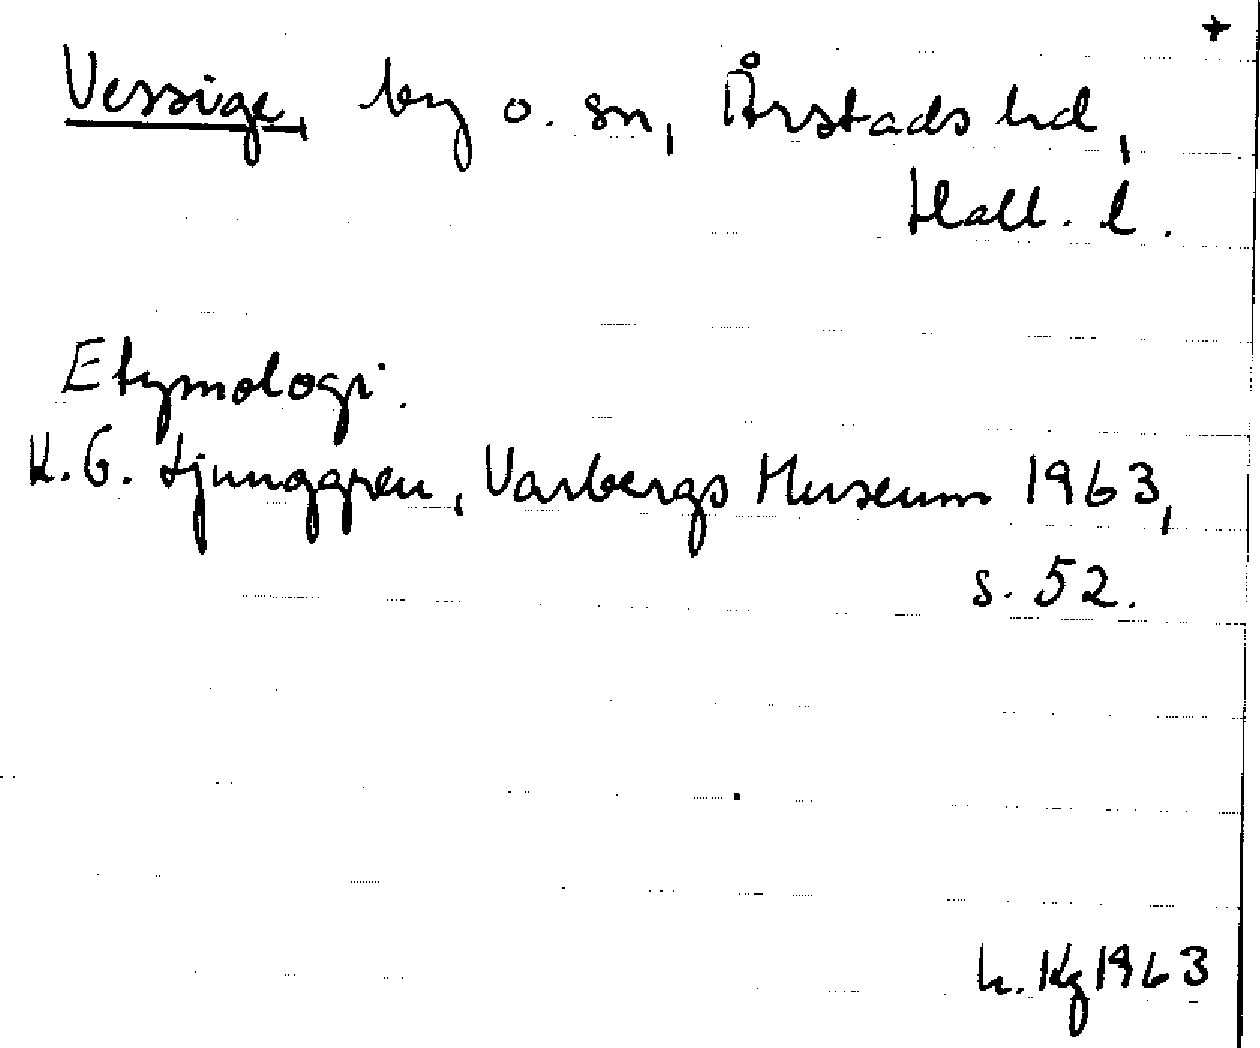 +
Vessige, by o. sn, Årstads hd,
Hall. l.
Etymologi.
K.G. Ljunggren, Varbergs Museum 1963,
s. 52.
h. Kg 1963